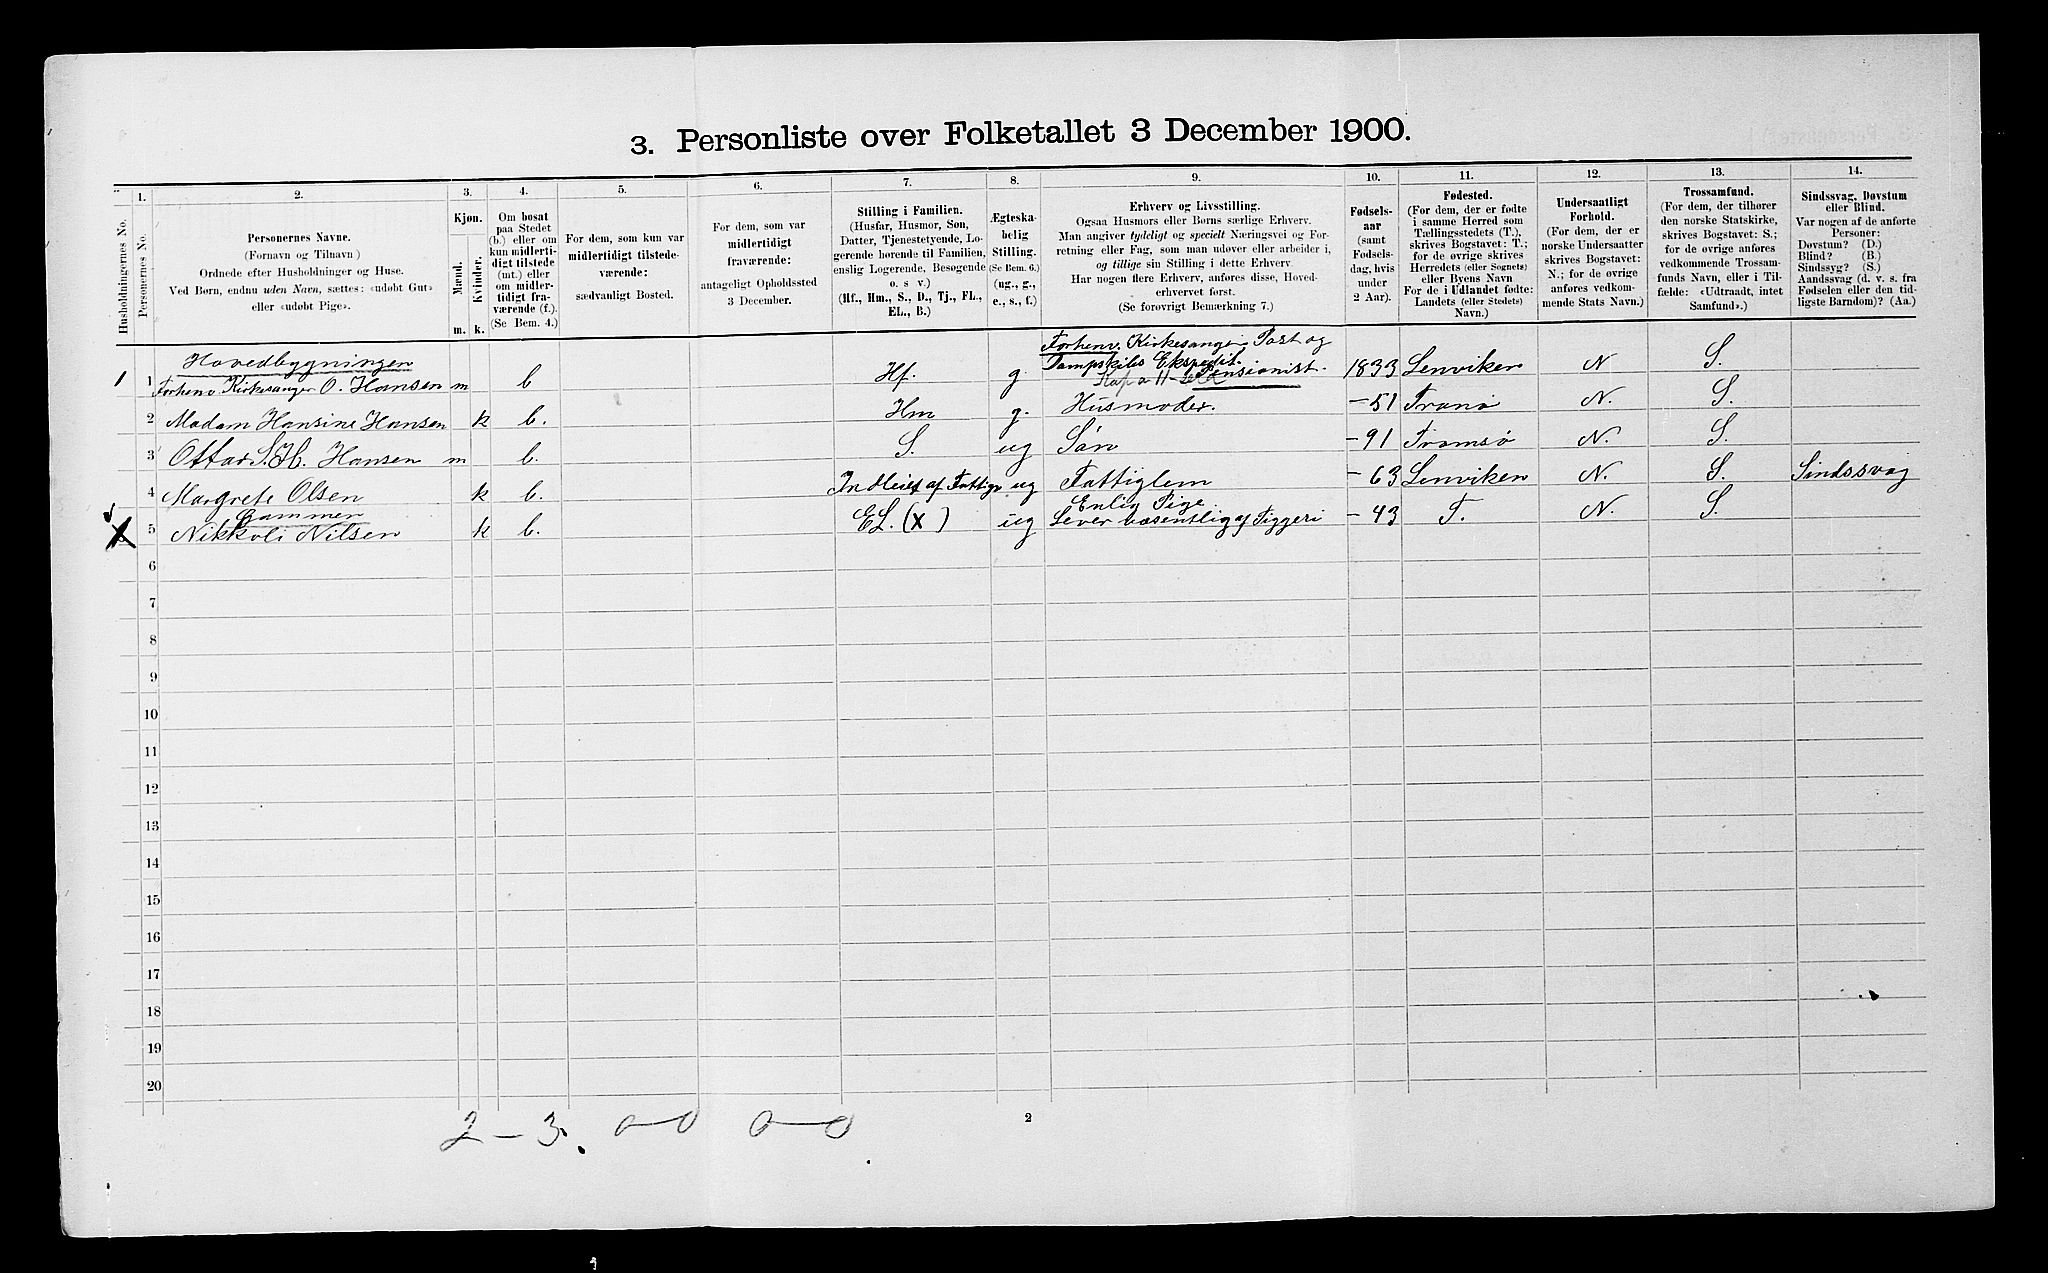 3. Personliste over Folketallet 3 December 1900.
1. 2. 3. 4. 5. 6. 7. 8. 9. 10. 11. 12. 13. 14.
Husholdningernes No.
Personernes No.
Personernes Navne.
(Fornavn og Tilnavn)
Ordnede efter Husholdninger og Huse.
Ved Børn, endnu uden Navn, sættes: «udøbt Gut»
eller «udøbt Pige».
Kjøn.
Mænd.
Kvinder.
m. k.
Om bosat
paa Stedet
(b.) eller om
kun midlerti-
digt tilstede
(mt.) eller
om midler-
tidigt fra-
værende (f.).
(Se Bem. 4.)
For dem, som kun var
midlertidigt tilstede-
værende:
sædvanligt Bosted.
For dem, som var
midlertidigt
fraværende:
antageligt Opholdssted
3 December.
Stilling i Familien.
(Husfar, Husmor, Søn,
Datter, Tjenestetyende, Lo-
gerende hørende til Familien,
enslig Logerende, Besøgende
o. s. v.)
(Hf., Hm., S., D., Tj., FL.,
EL., B.)
Ægteska-
belig
Stilling.
(Se Bem. 6.)
(ug., g.,
e., s., f.)
Erhverv og Livsstilling.
Ogsaa Husmors eller Børns særlige Erhverv.
Man angiver tydeligt og specielt Næringsvei og For-
retning eller Fag, som man udøver eller arbeider i,
og tillige sin Stilling i dette Erhverv.
Har nogen flere Erhverv, anføres disse, Hoved-
erhvervet først.
(Se forøvrigt Bemærkning 7.)
Fødsels-
aar
(samt
Fødsels-
dag, hvis
under
2 Aar).
Fødested.
(For dem, der er fødte
i samme Herred som
Tællingsstedets (T.),
skrives Bogstavet: T.;
for de øvrige skrives
Herredets (eller Sognets)
eller Byens Navn
For de i Udlandet fødte:
Landets (eller Stedets)
Navn.)
Undersaatligt
Forhold.
(For dem, der er
norske Undersaatter
skrives Bogstavet:
N.; for de øvrige
anføres vedkom-
mende Stats Navn.)
Trossamfund.
(For dem, der tilhører
den norske Statskirke,
skrives Bogstavet: S.;
for de øvrige anføres
vedkommende Trossam-
funds Navn, eller i Til-
fælde: «Udtraadt, intet
Samfund».)
Sindssvag, Døvstum
eller Blind.
Var nogen af de anførte
Personer:
Døvstum? (D.)
Blind? (B.)
Sindssyg? (S.)
Aandssvag (d. v. s. fra
Fødselen eller den tid-
ligste Barndom)? (Aa.)
Hovedbygningen Forhenv. Kirkesanger Post og
Dampskibs Ekspedit.
1 1 Forhenv. Kirkesanger O. Hansen m b Hf. g. Pensionist. 1833 Lenviken N S.
2 Madam Hansine Hansen k b. Hm g. Husmoder. -51 Tranø N. S.
3 Ottar S. H. Hansen m b. S. ug Søn -91 Tromsø N. S.
4 Margrete Olsen k b. Indleiet af Fattigv. ug Fattiglem -63 Lenviken N. S. Sindssvag
Gammen Enlig Pige
5 Nikkoli Nilsen k b. EL. (X) ug Lever væsentlig af Tiggeri -43 T. N. S.
6
7
8
9
10
11
12
13
14
15
16
17
18
19
20
2 – 3. 0–0 0–0
2